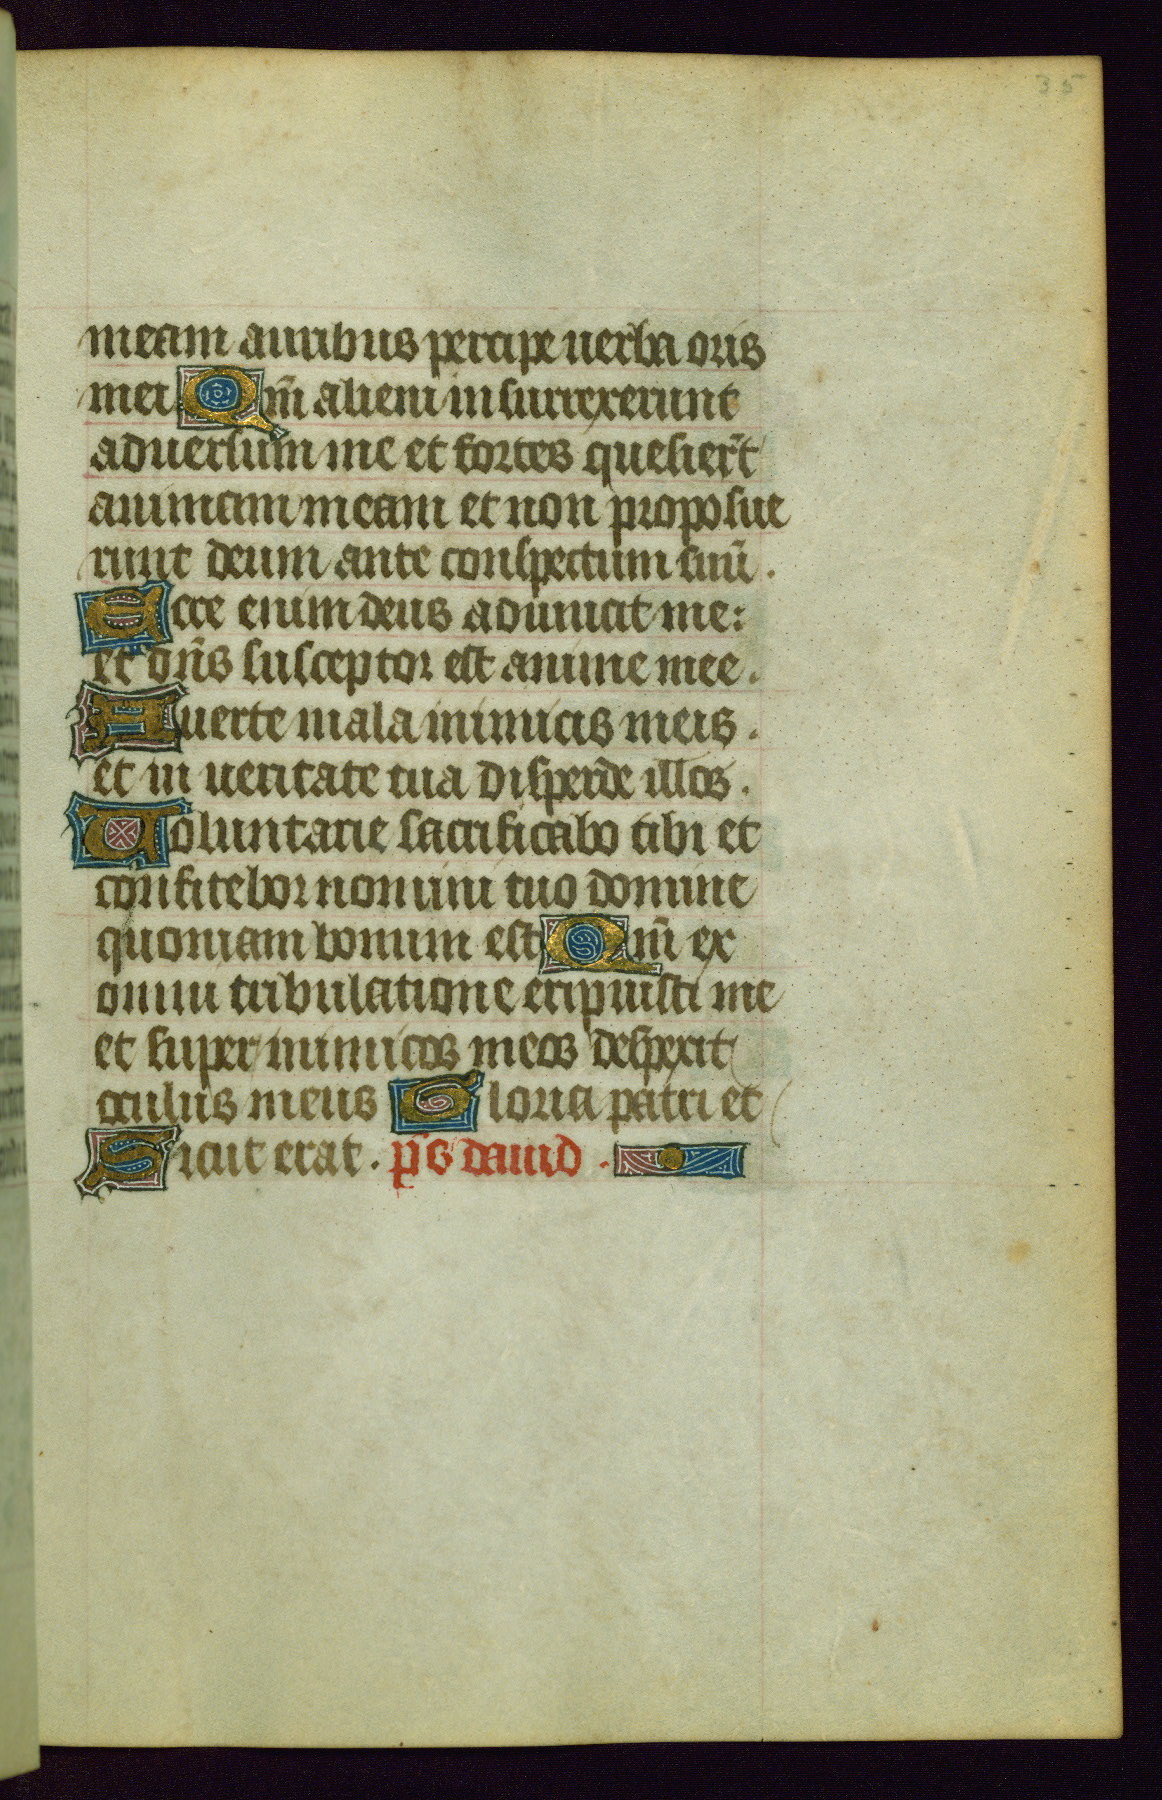 35
meam auribus percipe uerba oris
mei Qm̄ alieni insurrexerunt
aduersum me et fortes quesier̄t
animam meam et non proposue
runt deum ante conspectum suū.
Ecce enim deus adiuuat me:
et dn̄s susceptor est anime mee.
Auerte mala inimicis meis.
et in ueritate tua disperde illos.
Uoluntarie sacrificabo tibi et
confitebor nomini tuo domine
quoniam bonum est Qm̄ ex
omni tribulatione eripuisti me
et super inimicos meos despexit
oculus meus Gloria patri et
Sicut erat. ps dauid.